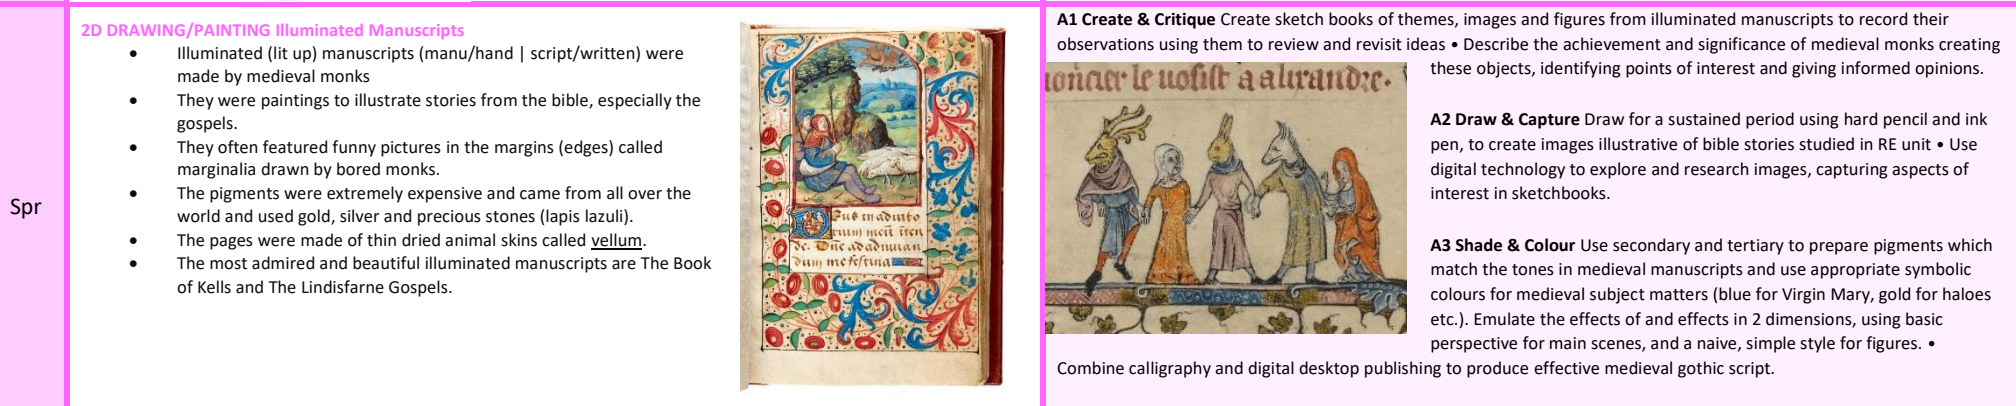 Spr
2D DRAWING/PAINTING Illuminated Manuscripts
• Illuminated (lit up) manuscripts (manu/hand | script/written) were
made by medieval monks
• They were paintings to illustrate stories from the bible, especially the
gospels.
• They often featured funny pictures in the margins (edges) called
marginalia drawn by bored monks.
• The pigments were extremely expensive and came from all over the
world and used gold, silver and precious stones (lapis lazuli).
• The pages were made of thin dried animal skins called vellum.
• The most admired and beautiful illuminated manuscripts are The Book
of Kells and The Lindisfarne Gospels.
A1 Create & Critique Create sketch books of themes, images and figures from illuminated manuscripts to record their
observations using them to review and revisit ideas • Describe the achievement and significance of medieval monks creating
these objects, identifying points of interest and giving informed opinions.
A2 Draw & Capture Draw for a sustained period using hard pencil and ink
pen, to create images illustrative of bible stories studied in RE unit • Use
digital technology to explore and research images, capturing aspects of
interest in sketchbooks.
A3 Shade & Colour Use secondary and tertiary to prepare pigments which
match the tones in medieval manuscripts and use appropriate symbolic
colours for medieval subject matters (blue for Virgin Mary, gold for haloes
etc.). Emulate the effects of and effects in 2 dimensions, using basic
perspective for main scenes, and a naive, simple style for figures. •
Combine calligraphy and digital desktop publishing to produce effective medieval gothic script.